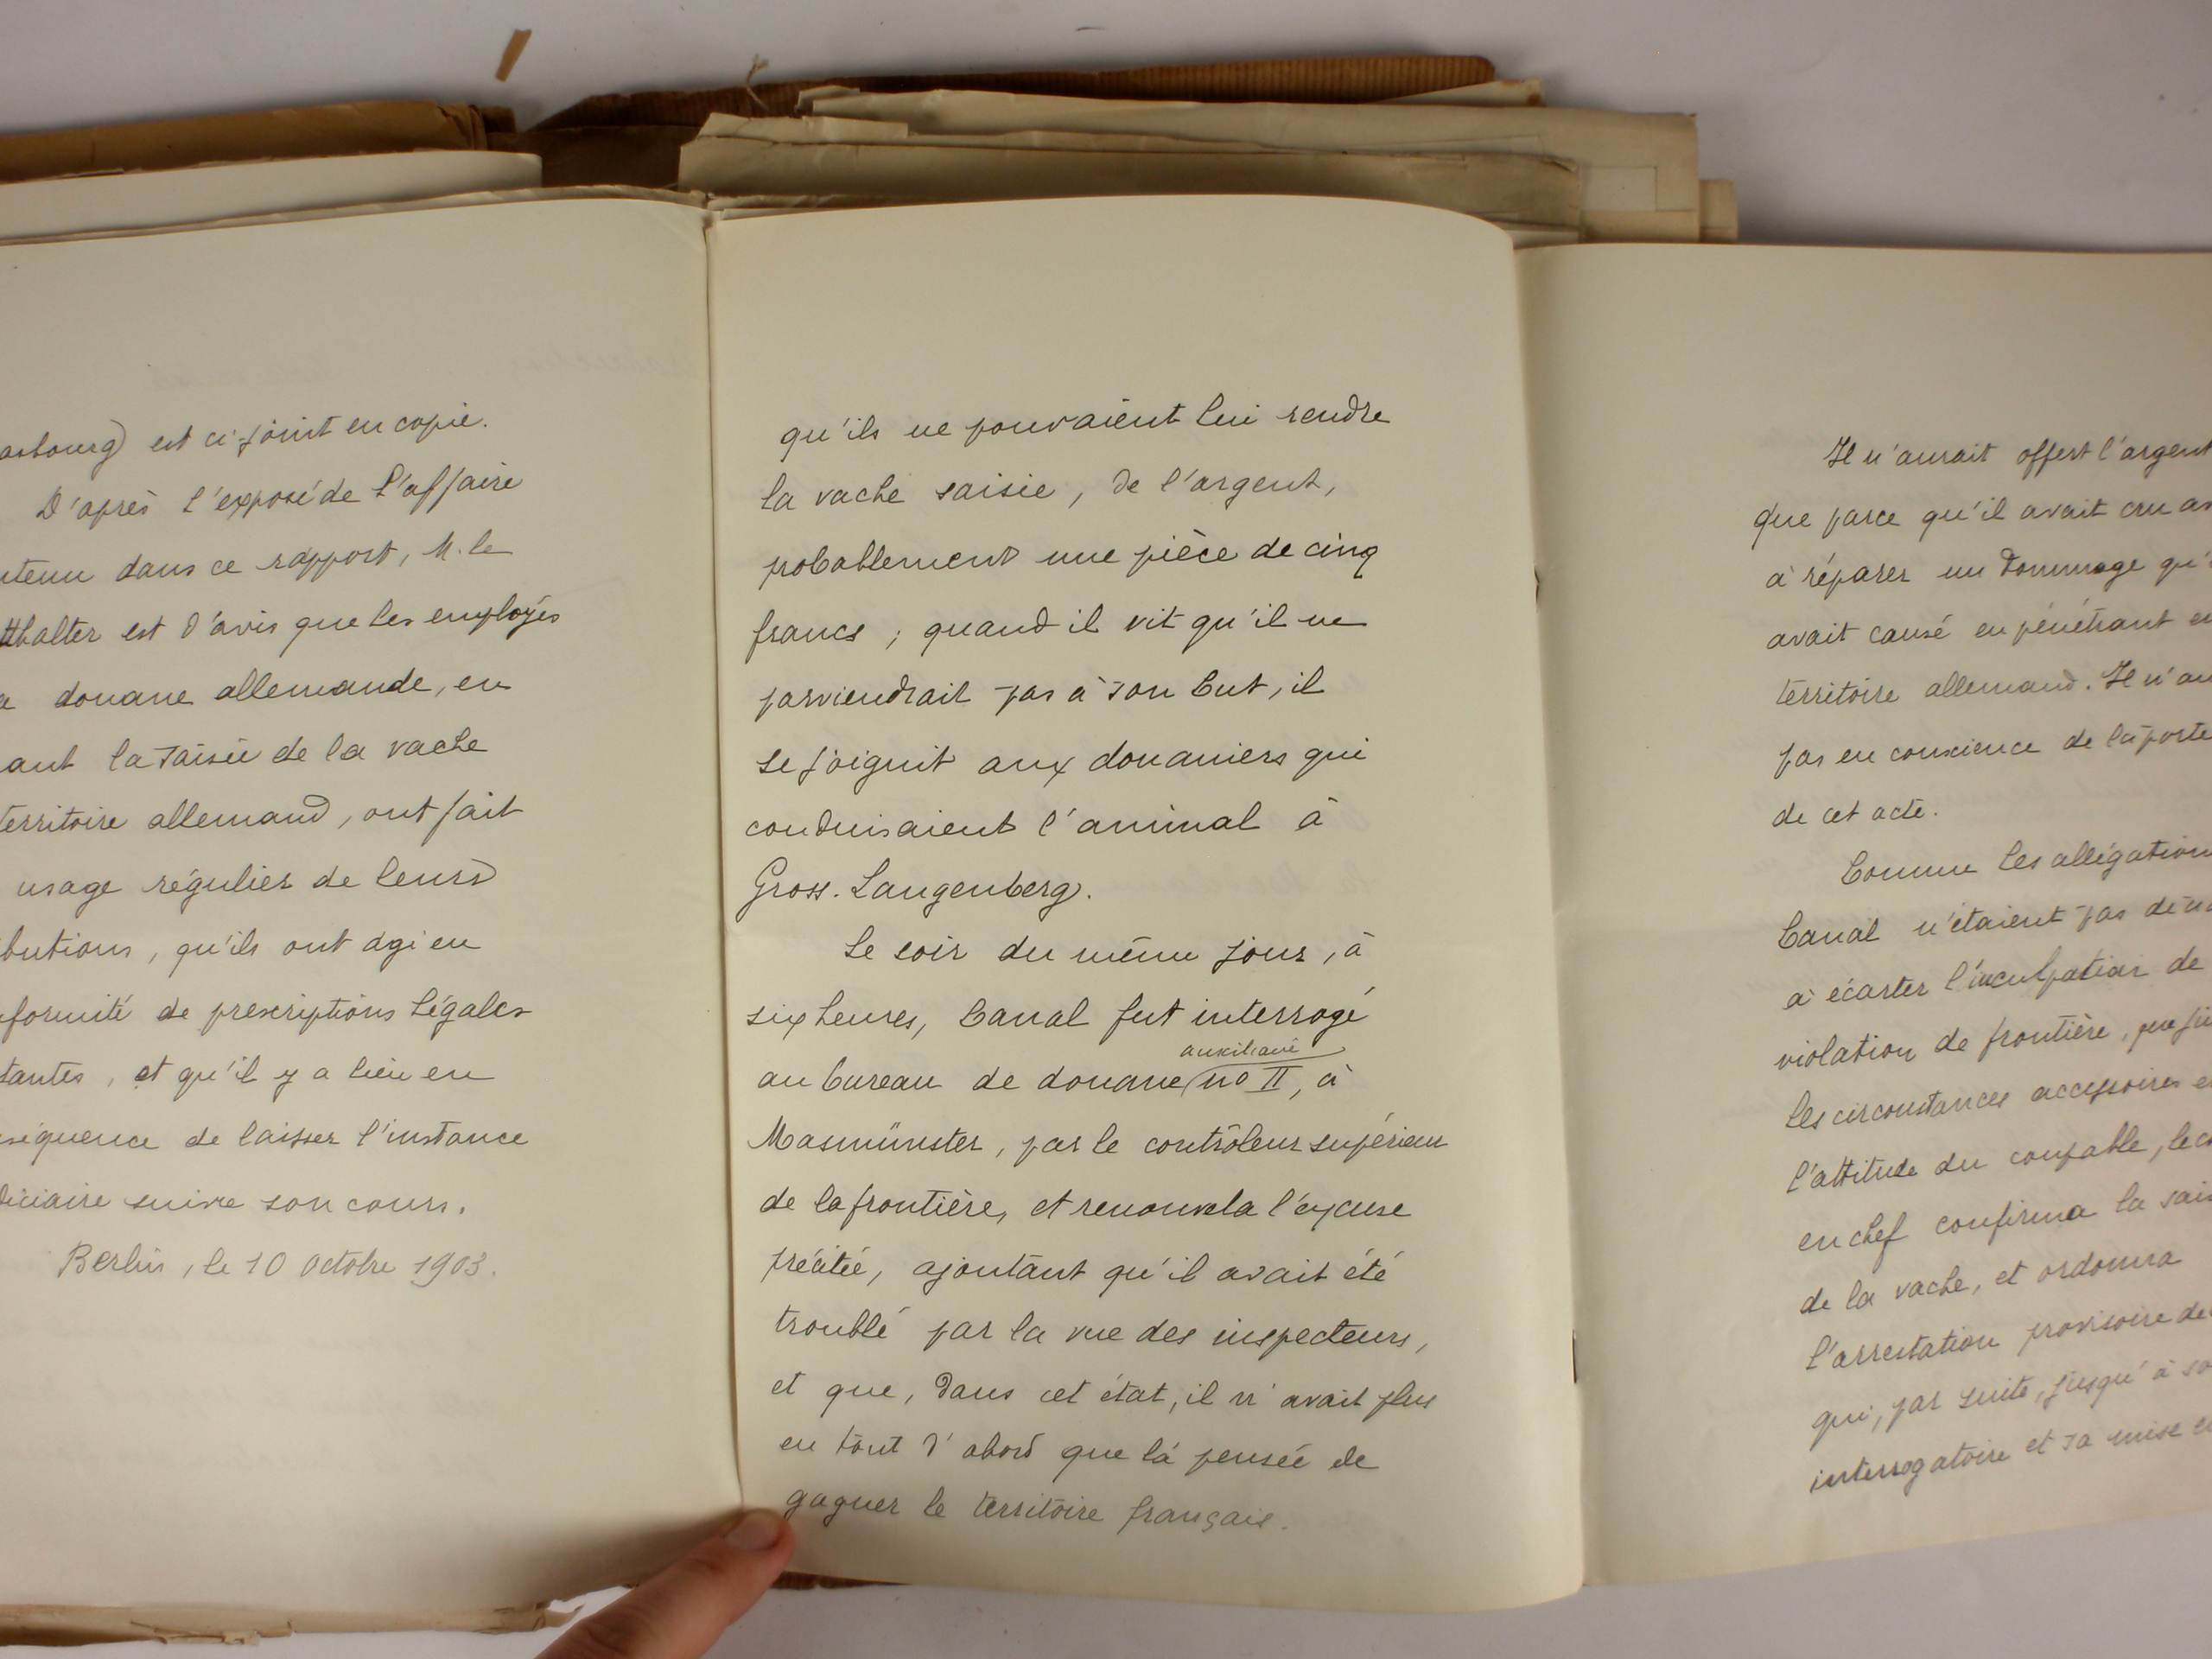 asbourg) est ci-joint en copie.
D'après l'exposé de l'affaire
ntenu dans ce rapport, M. le
tthalter est d'avis que les employés
a douane allemande, en
ant la saisie de la vache
territoire allemand, ont fait
usage régulier de leurs
butions, qu'ils ont agi en
formité de prescriptions légales
tantes, et qu'il y a lieu en
séquence de laisser l'instance
diciaire suivre son cours.
Berlin, le 10 octobre 1903.
qu'ils ne pouvaient lui rendre
la vache saisie, de l'argent,
probablement une pièce de cinq
francs ; quand il vit qu'il ne
parviendrait pas à son but, il
se joignit aux douaniers qui
conduisaient l'animal à
Gross. Langenberg.
Le soir du même jour, à
six heures, Canal fut interrogé
auxiliaire
au bureau de douane no II, à
Masmünster, par le contrôleur supérieur
de la frontière, et renouvela l'excuse
précitée, ajoutant qu'il avait été
troublé par la vue des inspecteurs,
et que, dans cet état, il n'avait plus
eu tout d'abord que la pensée de
gagner le territoire français.
Il n'aurait offert l'argent
que parce qu'il avait cru as
à réparer un dommage qu'
avait causé en pénétrant en
territoire allemand. Il n'au
pas eu conscience de la porte
de cet acte.
Comme les allégation
Canal n'étaient pas de na
à écarter l'inculpation de
violation de frontière, que
les circonstances accessoires e
l'attitude du coupable, le co
en chef confirma la sais
de la vache, et ordonna
l'arrestation provisoire de
qui, par suite, jusqu'à so
interrogatoire et sa mise e